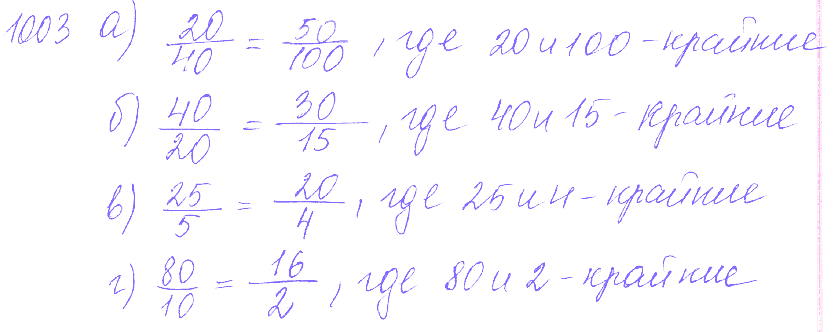 1003 а) 20/40 = 50/100, где 20 и 100 - крайние
б) 40/20 = 30/15, где 40 и 15 - крайние
в) 25/5 = 20/4, где 25 и 4 - крайние
г) 80/10 = 16/2, где 80 и 2 - крайние